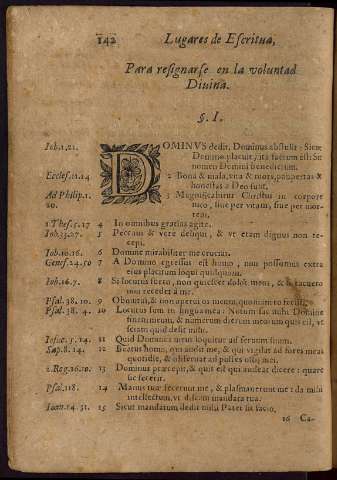 142 Lugares de Escritua,
Para resignarse en la voluntad
Diuina.
§. I.
Iob.1.21. DOMINVS dedit, Dominus abstulit: Sicut
Domino placuit, ita factum est: Sit
nomen Domini benedictum.
Eccles.11.14 2 Bona & mala, vita & mors, paupertas &
honestas a Deo sunt.
Ad Philip.1. 3 Magnificabitur Christus in corpore
20. meo, siue per vitam, siue per mor-
tem.
1 Thes.5.17 4 In omnibus gratias agite.
Iob.33.27. 5 Peccaui & vere deliqui, & vt eram dignus non re-
cepi.
Iob.10.16. 6 Domine mirabiliter me crucias.
Genes.24.50 7 A Domino egressus est sermo, non possumus extra
eius placitum loqui quidquam.
Iob.16.7. 8 Si locutus fuero, non quiescet dolor meus, & si tacuero
non recedet à me.
Psal.38.10. 9 Obmutui, & non aperui os meum, quoniam tu fecisti.
Psal.38.4. 10 Locutus sum in lingua mea: Notum fac mihi Domine
finem meum, & numerum dierum meorum quis est, vt
sciam quid desit mihi.
Iosue.5.14. 11 Quid Dominus meus loquitur ad seruum suum.
Sap.8.14. 12 Beatus homo, qui audit me, & qui vigilat ad fores meas
quotidie, & obseruat ad postes ostij mei.
2.Reg.16.10. 13 Dominus præcepit, & quis est qui audeat dicere: quare
sic fecerit.
Psal.118. 14 Manus tuæ fecerunt me, & plasmauerunt me: da mihi
intellectum, vt discam mandata tua.
Ioan.14.31. 15 Sicut mandatum dedit mihi Pater sic facio.
16 Ca-